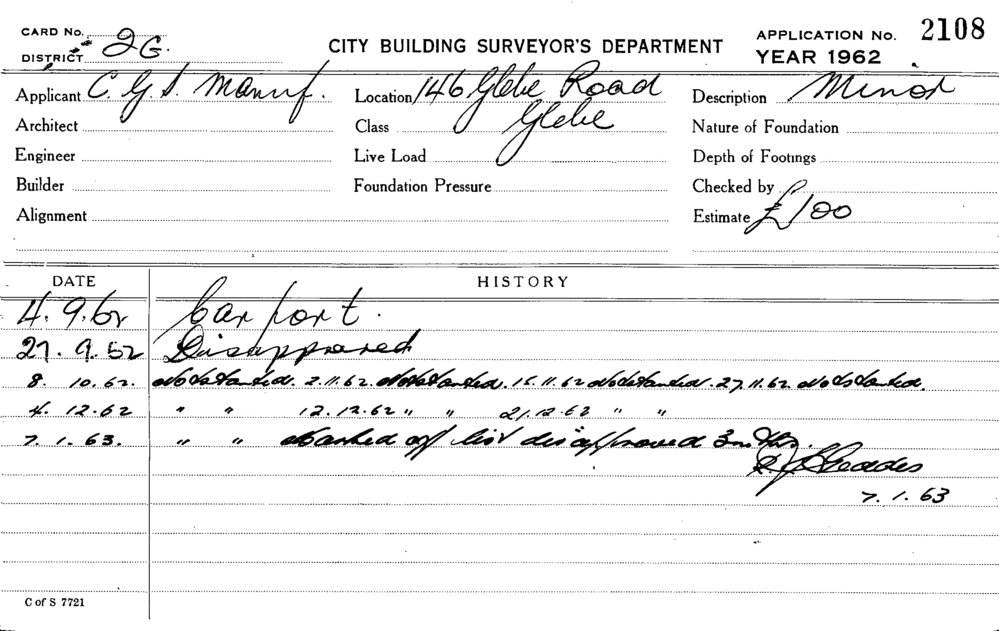 CARD No. 2G. CITY BUILDING SURVEYOR'S DEPARTMENT APPLICATION No. 2108
DISTRICT YEAR 1962
Applicant C. G. S. Manuf. Location 146 Glebe Road Description Minor
Architect Class Glebe Nature of Foundation
Engineer Live Load Depth of Footings
Builder Foundation Pressure Checked by
Alignment Estimate £100
DATE HISTORY
4. 9. 62 Car port.
27. 9. 62 Disapproved
8. 10. 62. Not Started. 2.11.62. Not Started. 15.11.62 Not Started. 27.11.62. Not Started.
4. 12. 62 " " 12.12.62 " " 21.12.62 " "
7. 1. 63. " " Marked off list disapproved 3 mths.
7. 1. 63
C of S 7721